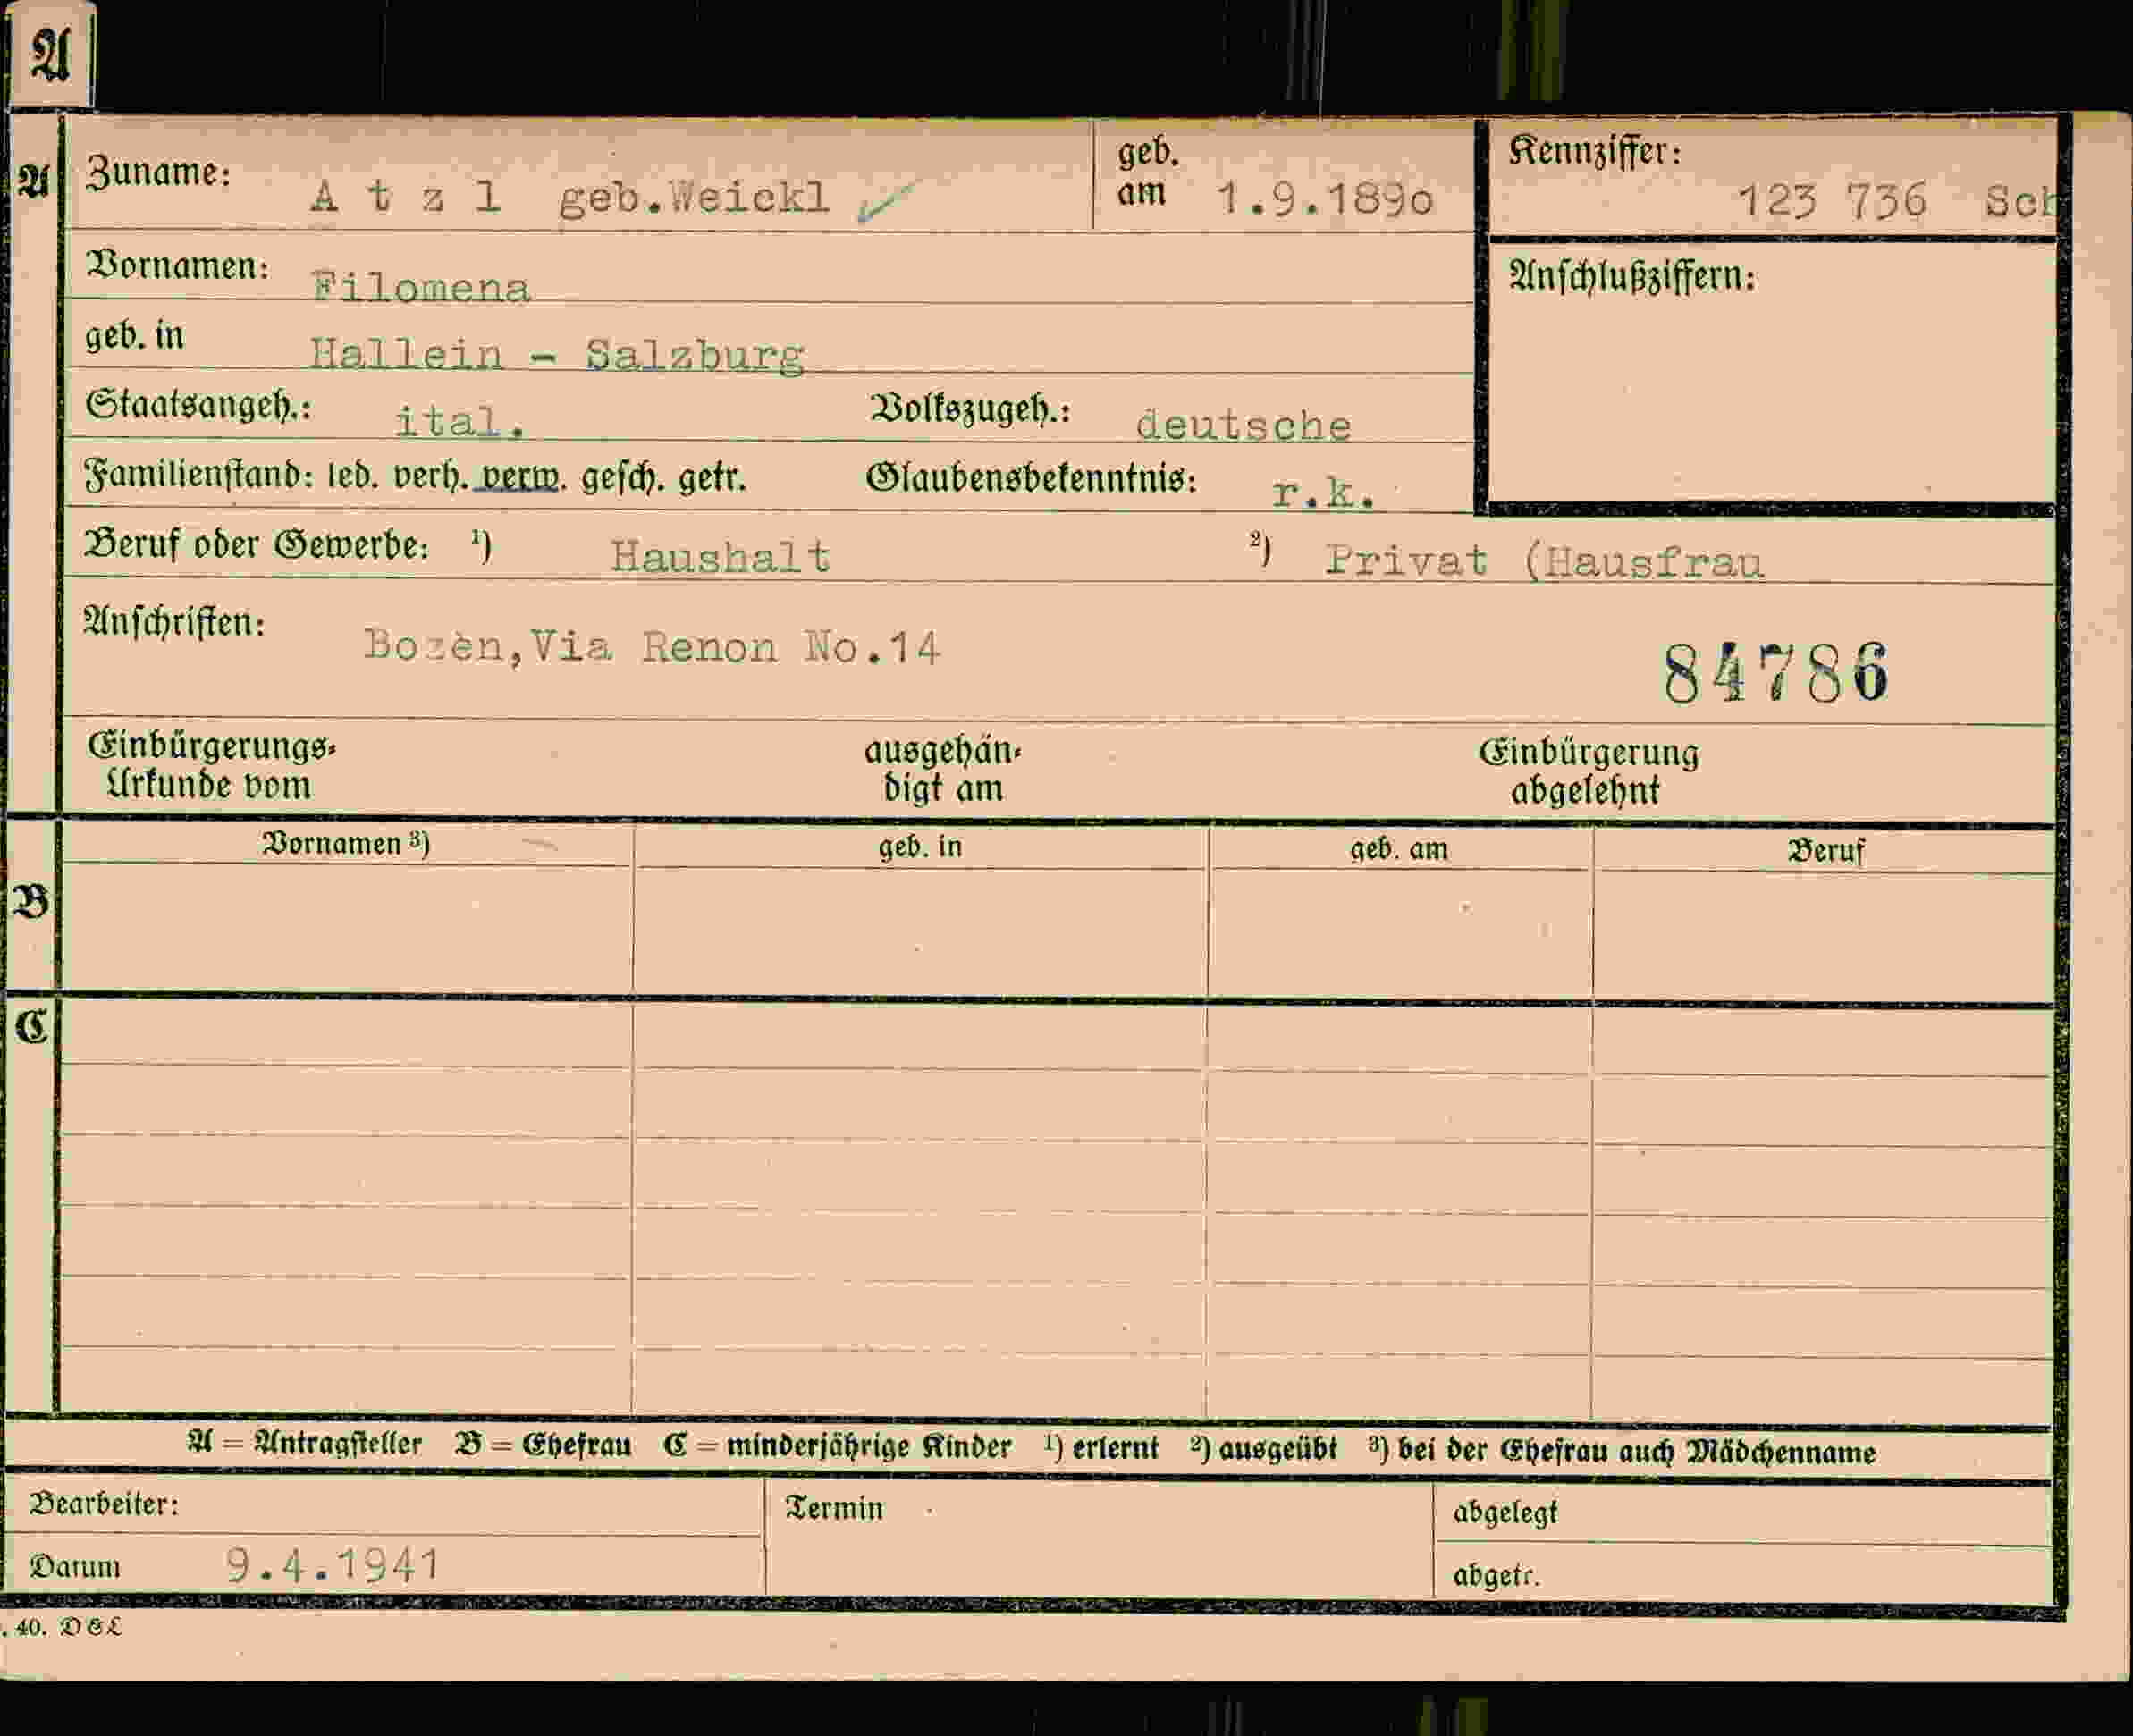 A
A
Zuname: A t z l geb.Weickl
geb. am 1.9.189o
Kennziffer: 123 736 Sch
Vornamen: Filomena
Anschlußziffern:
geb. in Hallein - Salzburg
Staatsangeh.: ital. Volkszugeh.: deutsche
Familienstand: led. verh. verw. gesch. getr. Glaubensbekenntnis: r.k.
Beruf oder Gewerbe: ¹) Haushalt ²) Privat (Hausfrau
Anschriften: Bozèn,Via Renon No.14
84786
Einbürgerungs-
Urkunde vom
ausgehän-
digt am
Einbürgerung
abgelehnt
Vornamen ³) geb. in geb. am Beruf
B
C
A = Antragsteller B = Ehefrau C = minderjährige Kinder ¹) erlernt ²) ausgeübt ³) bei der Ehefrau auch Mädchenname
Bearbeiter: Termin abgelegt
Datum 9.4.1941 abgetr.
. 40. D & L